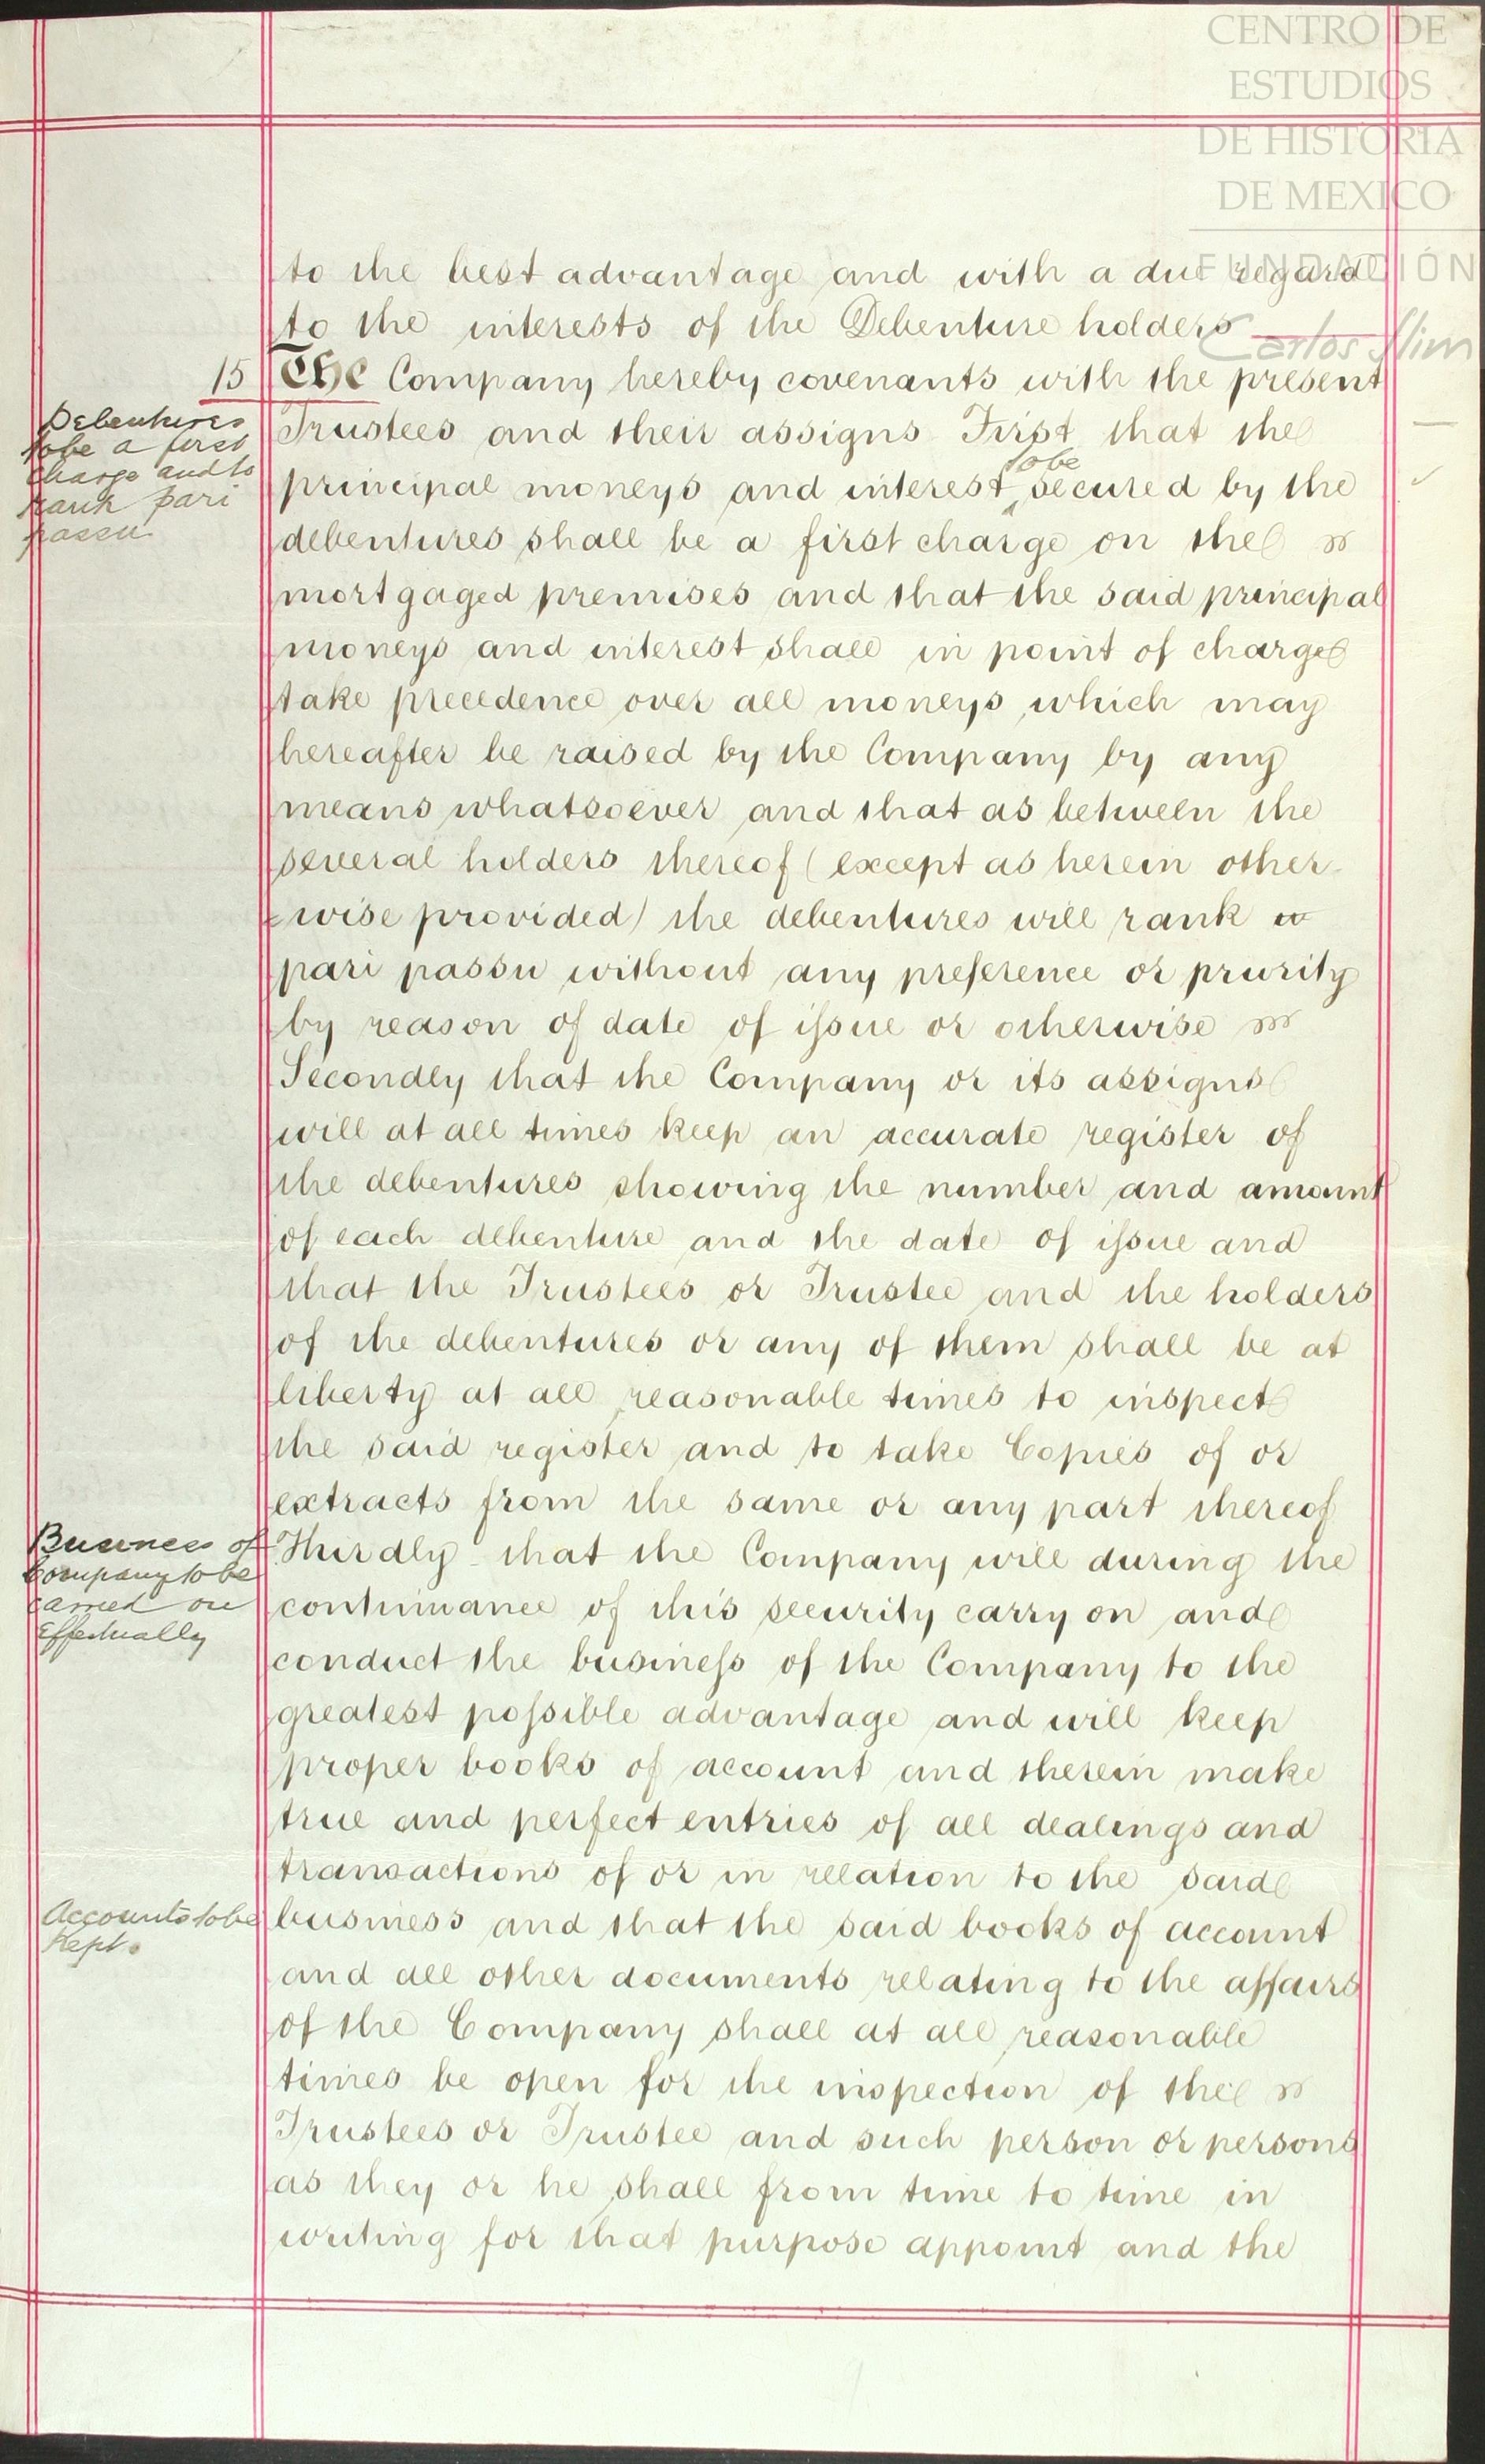 CENTRO DE
ESTUDIOS
DE HISTORIA
DE MEXICO
FUNDACIÓN
Carlos Slim
to the best advantage and with a due regard
to the interests of the Debenture holders
15 The Company hereby covenants with the present
Debentures
to be a first
charge and to
rank pari
passu
Trustees and their assigns First that the
to be
principal moneys and interest secured by the
debentures shall be a first charge on the
mortgaged premises and that the said principal
moneys and interest shall in point of charge
take precedence over all moneys which may
hereafter be raised by the Company by any
means whatsoever and that as between the
several holders thereof (except as herein other-
-wise provided) the debentures will rank
pari passu without any preference or priority
by reason of date of issue or otherwise
Secondly that the Company or its assigns
will at all times keep an accurate register of
the debentures showing the number and amount
of each debenture and the date of issue and
that the Trustees or Trustee and the holders
of the debentures or any of them shall be at
liberty at all reasonable times to inspect
the said register and to take Copies of or
extracts from the same or any part thereof
Business of
Company to be
carried on
effectually
Thirdly that the Company will during the
continuance of this security carry on and
conduct the business of the Company to the
greatest possible advantage and will keep
proper books of account and therein make
true and perfect entries of all dealings and
transactions of or in relation to the said
Accounts to be
kept.
business and that the said books of account
and all other documents relating to the affairs
of the Company shall at all reasonable
times be open for the inspection of the
Trustees or Trustee and such person or persons
as they or he shall from time to time in
writing for that purpose appoint and the